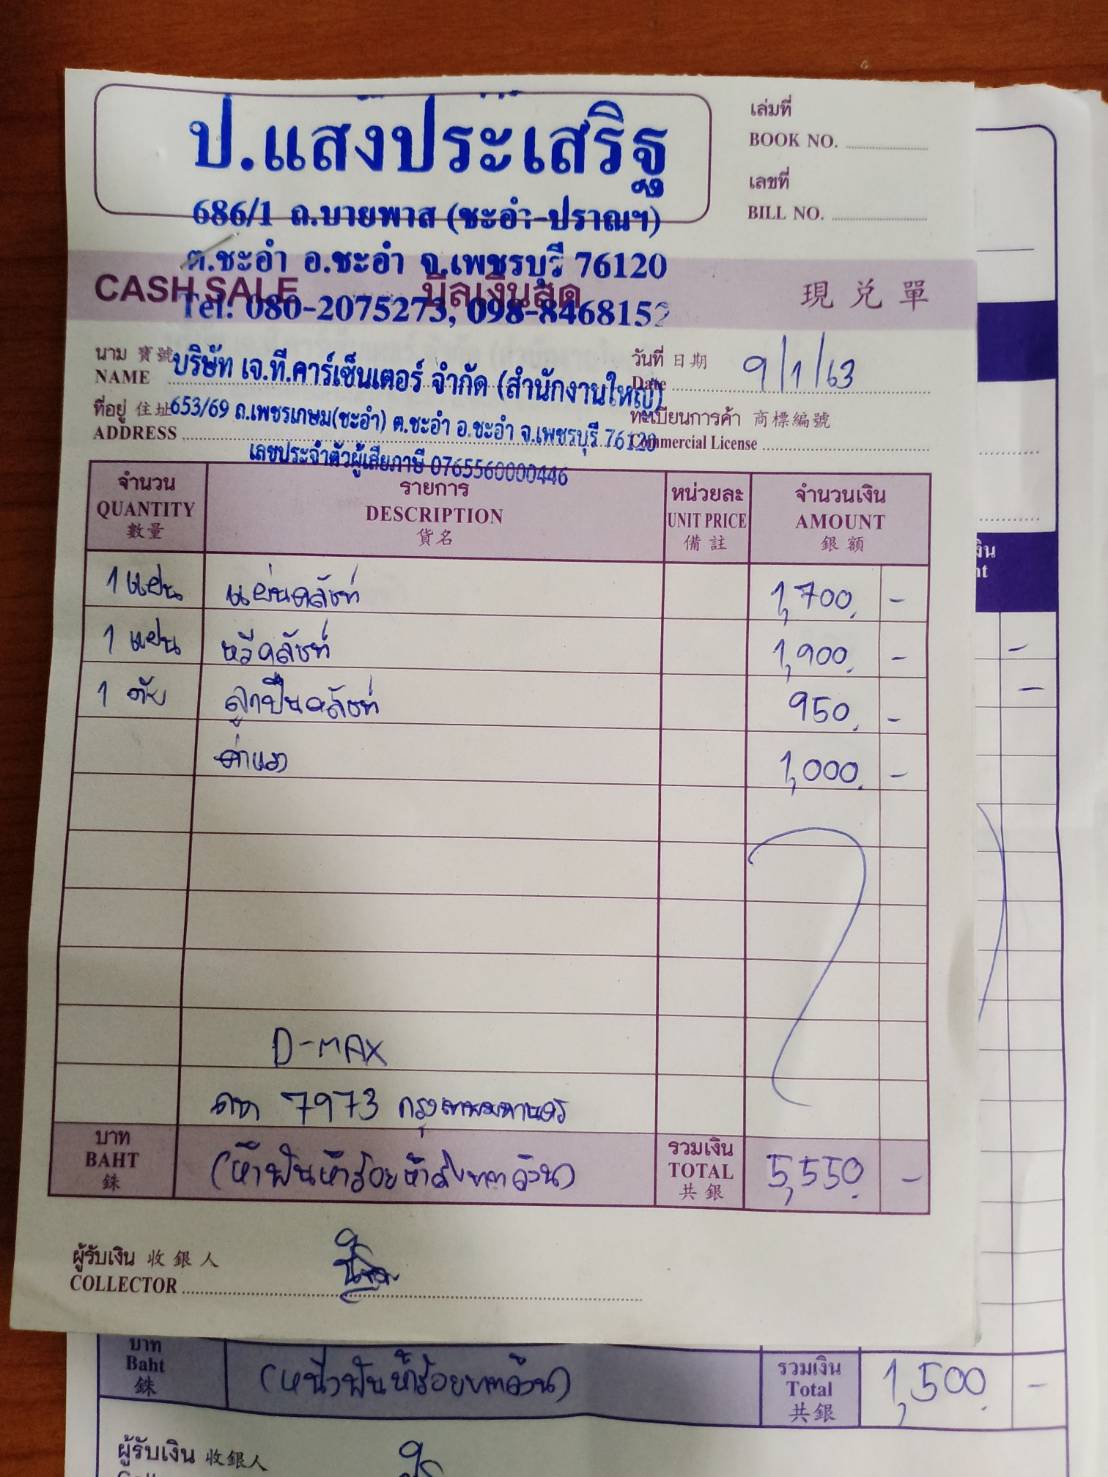 ป.แสงประเสริฐ
686/1 ถ.บายพาส (ชะอำ-ปราณฯ)
ต.ชะอำ อ.ชะอำ จ.เพชรบุรี 76120
Tel: 080-2075273, 098-8468152
เล่มที่
BOOK NO.
เลขที่
BILL NO.
CASH SALE บิลเงินสด 現兑單
นาม 寶號 บริษัท เจ.ที.คาร์เซ็นเตอร์ จำกัด (สำนักงานใหญ่)
NAME
วันที่ 日期 9/1/63
Date
ที่อยู่ 住址 653/69 ถ.เพชรเกษม(ชะอำ) ต.ชะอำ อ.ชะอำ จ.เพชรบุรี 76120
ADDRESS
ทะเบียนการค้า 商標編號
Commercial License
เลขประจำตัวผู้เสียภาษี 0765560000446
จำนวน รายการ หน่วยละ จำนวนเงิน
QUANTITY DESCRIPTION UNIT PRICE AMOUNT
數量 貨名 備註 銀額
1 แผ่น แผ่นคลัชท์ 1,700 -
1 แผ่น หวีคลัชท์ 1,900 -
1 ตับ ลูกปืนคลัชท์ 950 -
ค่าแรง 1,000 -
D-MAX
7973 กรุงเทพมหานคร
บาท
BAHT
銖
(ห้าพันห้าร้อยห้าสิบบาทถ้วน)
รวมเงิน
TOTAL
共銀
5,550 -
ผู้รับเงิน 收銀人
COLLECTOR
บาท
Baht
銖
(หนึ่งพันห้าร้อยบาทถ้วน)
รวมเงิน
Total
共銀
1,500 -
ผู้รับเงิน 收銀人